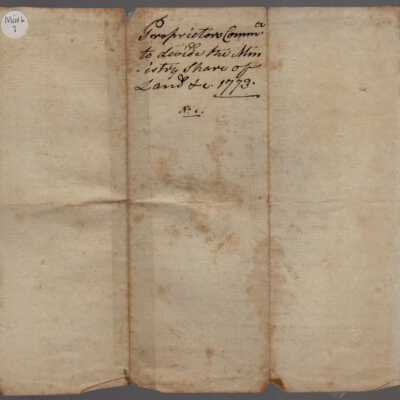 Proprietors Comm^ee
to devide the Min
-istry Share of
Land &c. 1773.
No. 1.